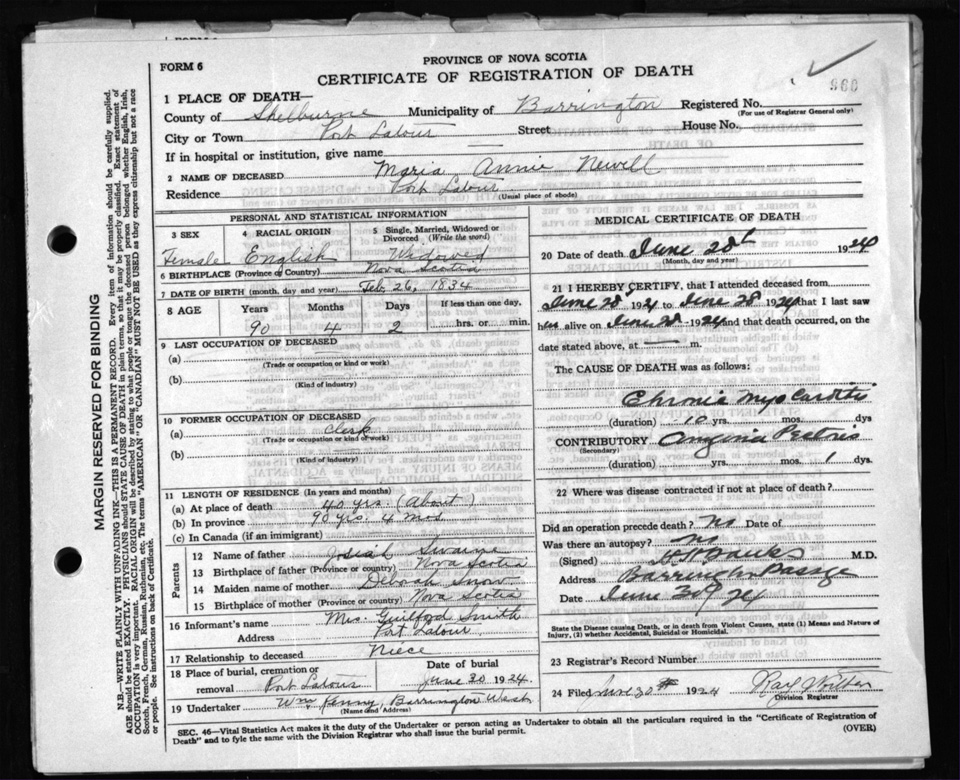 FORM 6
PROVINCE OF NOVA SCOTIA
CERTIFICATE OF REGISTRATION OF DEATH
960
1 PLACE OF DEATH—
County of Shelburne Municipality of Barrington Registered No.
(For use of Registrar General only)
City or Town Port Latour Street House No.
If in hospital or institution, give name
2 NAME OF DECEASED Maria Annie Newell
Residence Port Latour
(Usual place of abode)
PERSONAL AND STATISTICAL INFORMATION
3 SEX 4 RACIAL ORIGIN 5 Single, Married, Widowed or Divorced (Write the word)
Female English Widowed
6 BIRTHPLACE (Province or Country) Nova Scotia
7 DATE OF BIRTH (month, day and year) Feb 26, 1834
8 AGE Years Months Days If less than one day,
90 4 2 hrs. or min.
9 LAST OCCUPATION OF DECEASED
(a)
(Trade or occupation or kind or work)
(b)
(Kind of industry)
10 FORMER OCCUPATION OF DECEASED
(a) Clerk
(Trade or occupation or kind of work)
(b)
(Kind of industry)
11 LENGTH OF RESIDENCE (In years and months)
(a) At place of death 40 yrs. (About)
(b) In province 90 yrs. 4 mos
(c) In Canada (if an immigrant)
Parents
12 Name of father Josiah Swaine
13 Birthplace of father (Province or country) Nova Scotia
14 Maiden name of mother Deborah Snow
15 Birthplace of mother (Province or country) Nova Scotia
16 Informant's name Mrs. Guilford Smith
Address Port Latour
17 Relationship to deceased Niece
18 Place of burial, cremation or removal Port Latour Date of burial June 30 1924.
19 Undertaker Wm Kenny, Barrington West
(Name and Address)
MEDICAL CERTIFICATE OF DEATH
20 Date of death June 28th 1924
(Month, day and year)
21 I HEREBY CERTIFY, that I attended deceased from
June 28 1924 to June 28 1924 that I last saw
her alive on June 28 1924 and that death occurred, on
date stated above, at — m.
The CAUSE OF DEATH was as follows:
Chronic Myocarditis
(duration) 10 yrs. mos. dys
CONTRIBUTORY Angina Pectoris
(Secondary)
(duration) yrs. mos. 1 dys.
22 Where was disease contracted if not at place of death?
Did an operation precede death? No Date of
Was there an autopsy? no
(Signed) Banks M.D.
Address Barrington Passage
Date June 30/24
State the Disease causing Death, or in death from Violent Causes, state (1) Means and Nature of
Injury, (2) whether Accidental, Suicidal or Homicidal.
23 Registrar's Record Number
24 Filed June 30th 1924
Division Registrar
SEC. 46—Vital Statistics Act makes it the duty of the Undertaker or person acting as Undertaker to obtain all the particulars required in the "Certificate of Registration of
Death" and to fyle the same with the Division Registrar who shall issue the burial permit.
(OVER)
MARGIN RESERVED FOR BINDING
N.B.—WRITE PLAINLY WITH UNFADING INK—THIS IS A PERMANENT RECORD. Every item of information should be carefully supplied.
AGE should be stated EXACTLY. PHYSICIANS should STATE CAUSE OF DEATH in plain terms, so that it may be properly classified. Exact statement of
OCCUPATION is very important. RACIAL ORIGIN will be described by stating to what people or tongue the deceased person belonged, whether English, Irish,
Scotch, French, German, Russian, Ruthenian, etc. The terms "AMERICAN" OR "CANADIAN" MUST NOT BE USED as they express citizenship but not a race
or people. See instructions on back of Certificate.